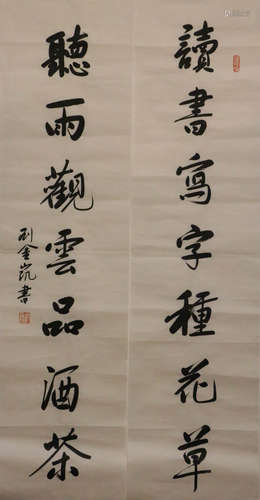 讀書寫字種花草
聽雨觀雲品酒茶
刘金凯書